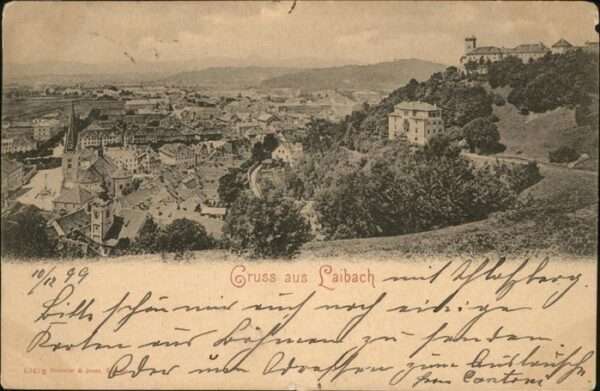 Gruss aus Laibach mit Schloßberg.
10/12 99
Bitte schön mir auch noch einige
Karten aus Böhmen zu senden
Oder um Adressen zum Austausche